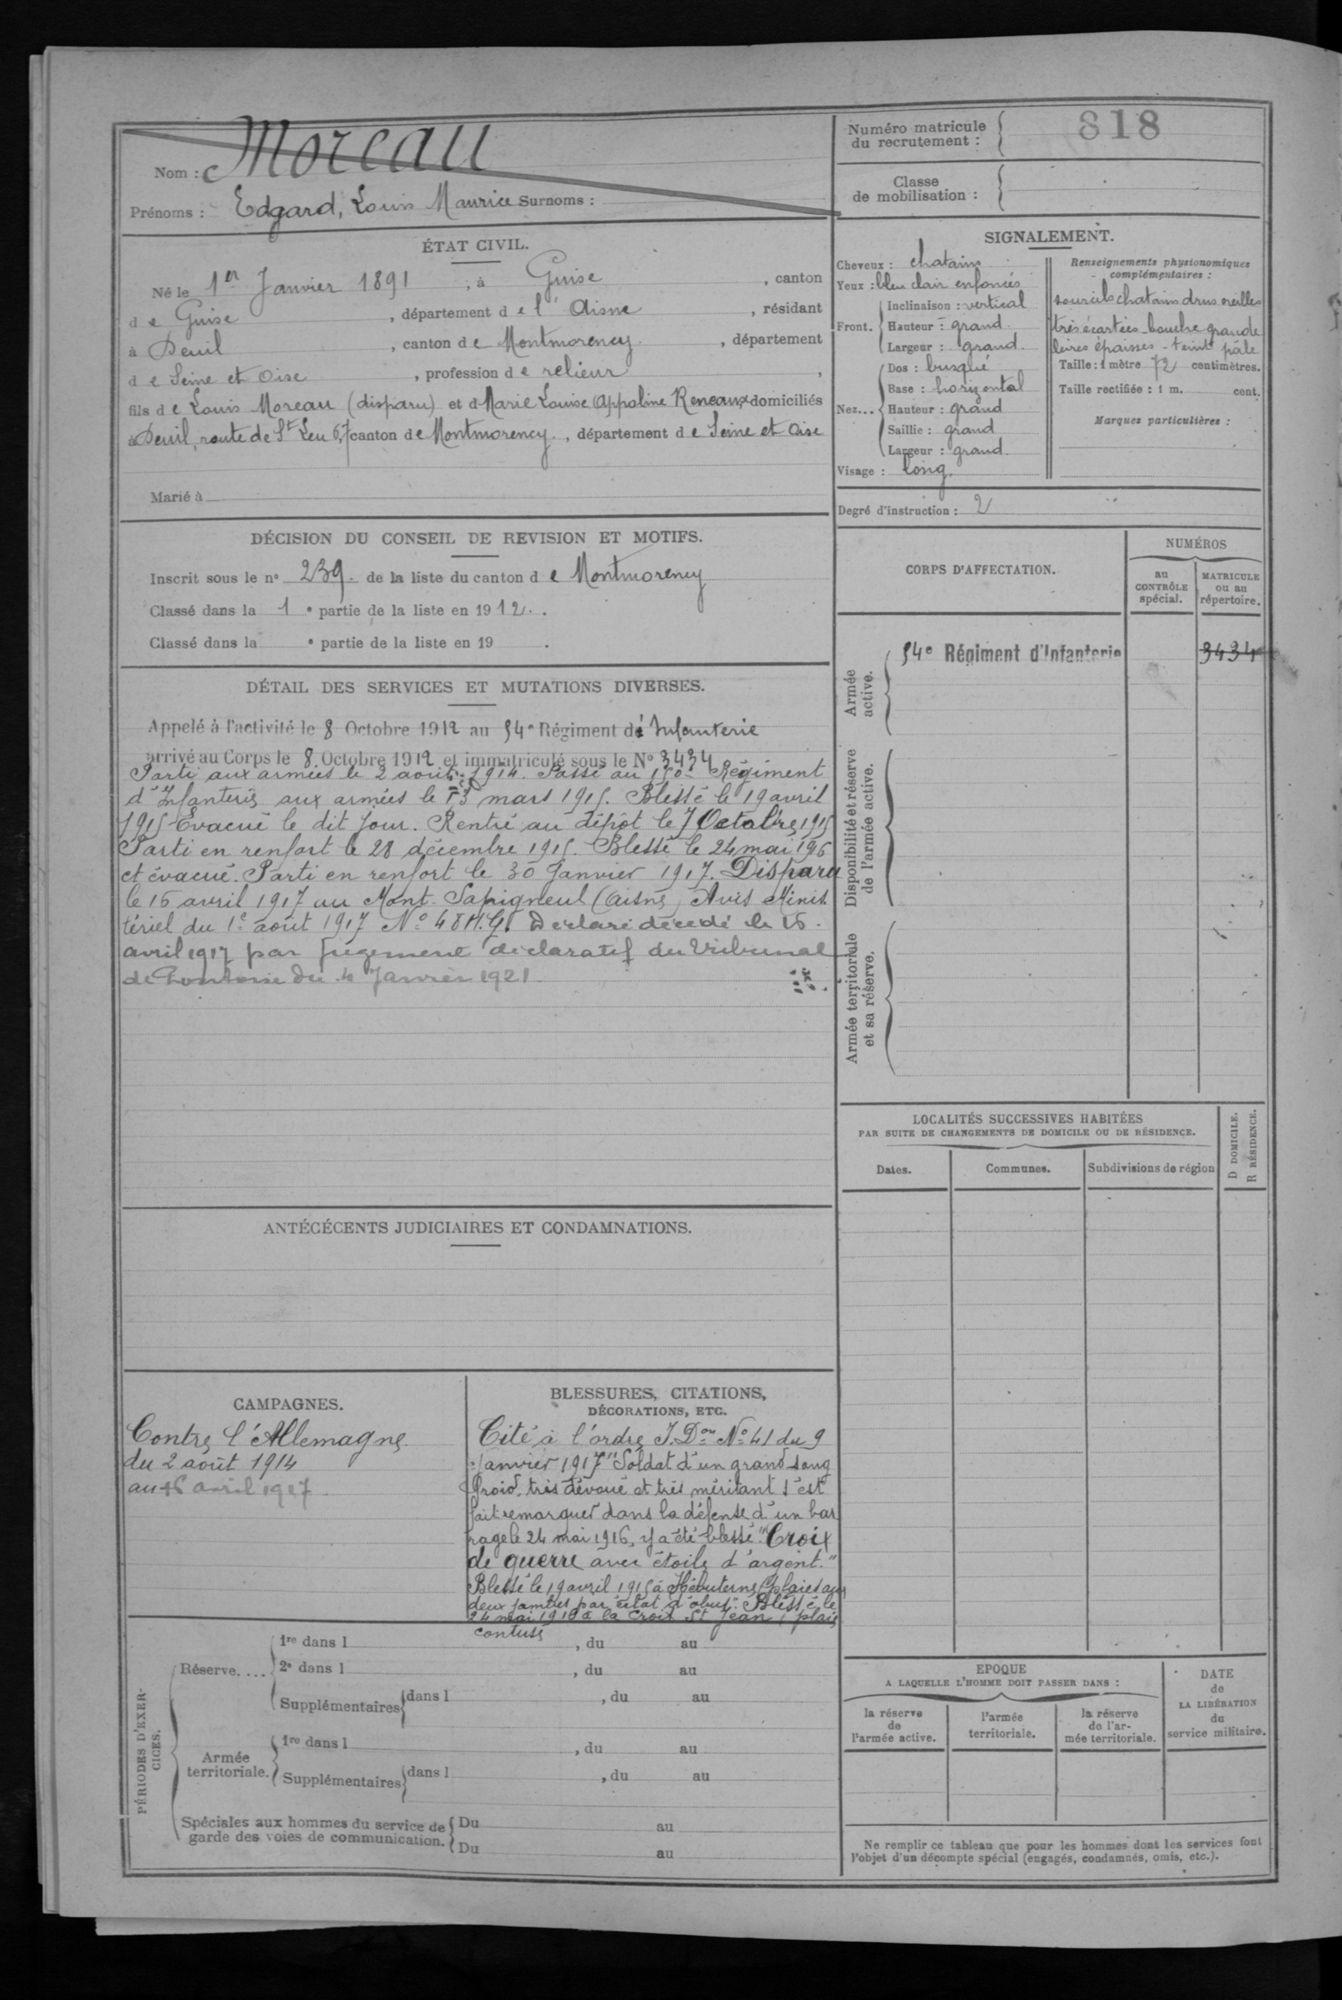 Nom : Moreau
Prénoms : Edgard, Louis Maurice Surnoms :
Numéro matricule du recrutement : 818
Classe de mobilisation :
ÉTAT CIVIL.
Né le 1er Janvier 1891, à Guise, canton
de Guise, département de l'Aisne, résidant
à Deuil, canton de Montmorency, département
de Seine et Oise, profession de relieur,
fils de Louis Moreau (disparu) et de Marie Louise Appoline Reneaux domiciliés
à Deuil, route de St Leu 67 canton de Montmorency, département de Seine et Oise
Marié à
SIGNALEMENT.
Cheveux : chatains
Yeux : bleu clair enfoncés
Front. Inclinaison : vertical
Hauteur : grand
Largeur : grand
Nez... Dos : busqué
Base : horizontal
Hauteur : grand
Saillie : grand
Largeur : grand
Visage : long
Renseignements physionomiques complémentaires :
sourcils chatains drus oreilles
très écartées - bouche grande
lèvres épaisses - teint pâle
Taille : 1 mètre 72 centimètres.
Taille rectifiée : 1 m. cent.
Marques particulières :
Degré d'instruction : 2
DÉCISION DU CONSEIL DE REVISION ET MOTIFS.
Inscrit sous le n° 239 de la liste du canton de Montmorency
Classé dans la 1e partie de la liste en 1912.
Classé dans la e partie de la liste en 19 .
CORPS D'AFFECTATION.
NUMÉROS
au CONTRÔLE spécial.
MATRICULE ou au répertoire.
Armée active.
54e Régiment d'Infanterie 3434
Disponibilité et réserve de l'armée active.
Armée territoriale et sa réserve.
DÉTAIL DES SERVICES ET MUTATIONS DIVERSES.
Appelé à l'activité le 8 Octobre 1912 au 54e Régiment d'Infanterie
arrivé au Corps le 8 Octobre 1912 et immatriculé sous le N° 3434
Parti aux armées le 2 août 1914. Passé au Régiment
d'Infanterie aux armées le mars 1915. Blessé le 19 avril
1915 Evacué le dit jour. Rentré au dépôt le 7 Octobre 1915
Parti en renfort le 28 décembre 1915. Blessé le 24 mai 1916
et évacué. Parti en renfort le 30 Janvier 1917. Disparu
le 16 avril 1917 au Mont Sapigneul (Aisne) Avis Minis
tériel du 1e août 1917 N° Déclaré décédé le 16
avril 1917 par jugement déclaratif du Tribunal
de Pontoise du 4 Janvier 1921
LOCALITÉS SUCCESSIVES HABITÉES
PAR SUITE DE CHANGEMENTS DE DOMICILE OU DE RÉSIDENCE.
Dates. Communes. Subdivisions de région
D DOMICILE.
R RÉSIDENCE.
ANTÉCÉCENTS JUDICIAIRES ET CONDAMNATIONS.
CAMPAGNES.
Contre l'Allemagne
du 2 août 1914
au 16 avril 1917
BLESSURES, CITATIONS,
DÉCORATIONS, ETC.
Cité à l'ordre J. Don N° 41 du 9
Janvier 1917 "Soldat d'un grand sang
froid, très dévoué et très méritant s'est
fait remarquer dans la défense d'un bar
rage le 24 mai 1916, y a été blessé." Croix
de guerre avec étoile d'argent."
Blessé le 19 avril 1915 à Hébuterne plaies aux
deux jambes par éclat d'obus". Blessé le
24 mai 1916 à la Croix St Jean, plaie
contuse
PÉRIODES D'EXERCICES.
Réserve....
1re dans l , du au
2e dans l , du au
Supplémentaires dans l , du au
Armée territoriale.
1re dans l , du au
Supplémentaires dans l , du au
Spéciales aux hommes du service de garde des voies de communication.
Du au
Du au
EPOQUE
A LAQUELLE L'HOMME DOIT PASSER DANS :
la réserve de l'armée active.
l'armée territoriale.
la réserve de l'armée territoriale.
DATE de LA LIBÉRATION du service militaire.
Ne remplir ce tableau que pour les hommes dont les services font
l'objet d'un décompte spécial (engagés, condamnés, omis, etc.).